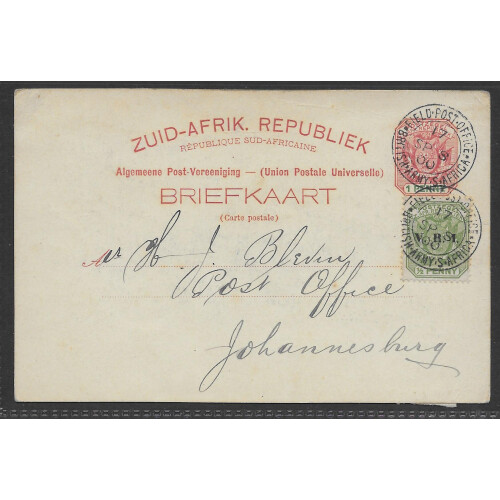 ZUID-AFRIK. REPUBLIEK
RÉPUBLIQUE SUD-AFRICAINE
Algemeene Post-Vereeniging — (Union Postale Universelle)
BRIEFKAART
(Carte postale)
1 PENNY
FIELD·POST·OFFICE·
BRITISH·ARMY·S·AFRICA
17
SP
00
V.R.I.
½ PENNY
FIELD·POST·OFFICE
BRITISH·ARMY·S·AFRICA
17
SP
00
H. J. Blevin
Post Office
Johannesburg